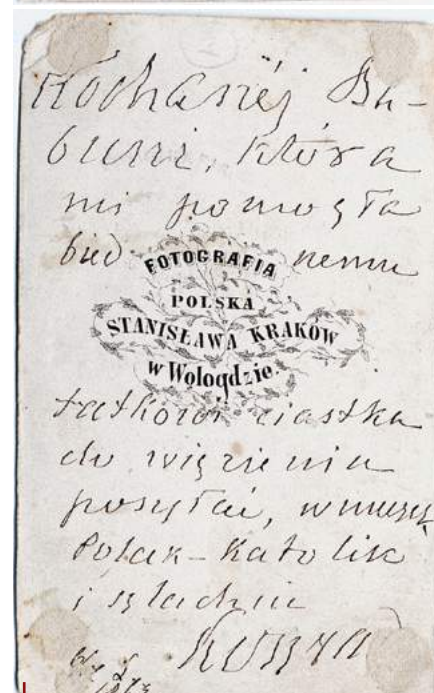 Kochanéj Ba-
buni, która
mi pomogła
bied nemu
FOTOGRAFIA
POLSKA
STANISŁAWA KRAKÓW
w Wologdzie.
tatkowi ciastka
do więzienia
posyłać, wnuczek
Polak-Katolik
i szlachcic